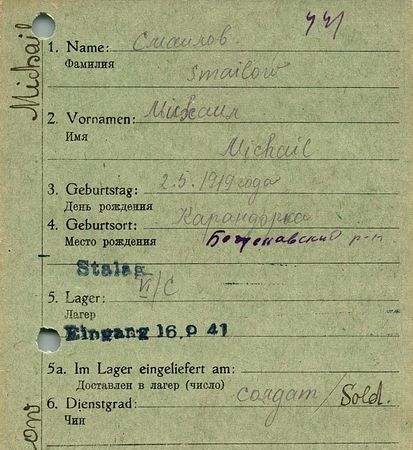 441
1. Name: Смаилов
Фамилия
Smailow
2. Vornamen: Михаил
Имя
Michail
3. Geburtstag: 2.5.1919 года
День рождения
4. Geburtsort: Карандорка
Место рождения
р-н
Stalag
VI/C
5. Lager:
Лагер
Eingang 16. 9 41
5a. Im Lager eingeliefert am:
Доставлен в лагер (число)
6. Dienstgrad: солдат / Sold.
Чин
Michail
ow